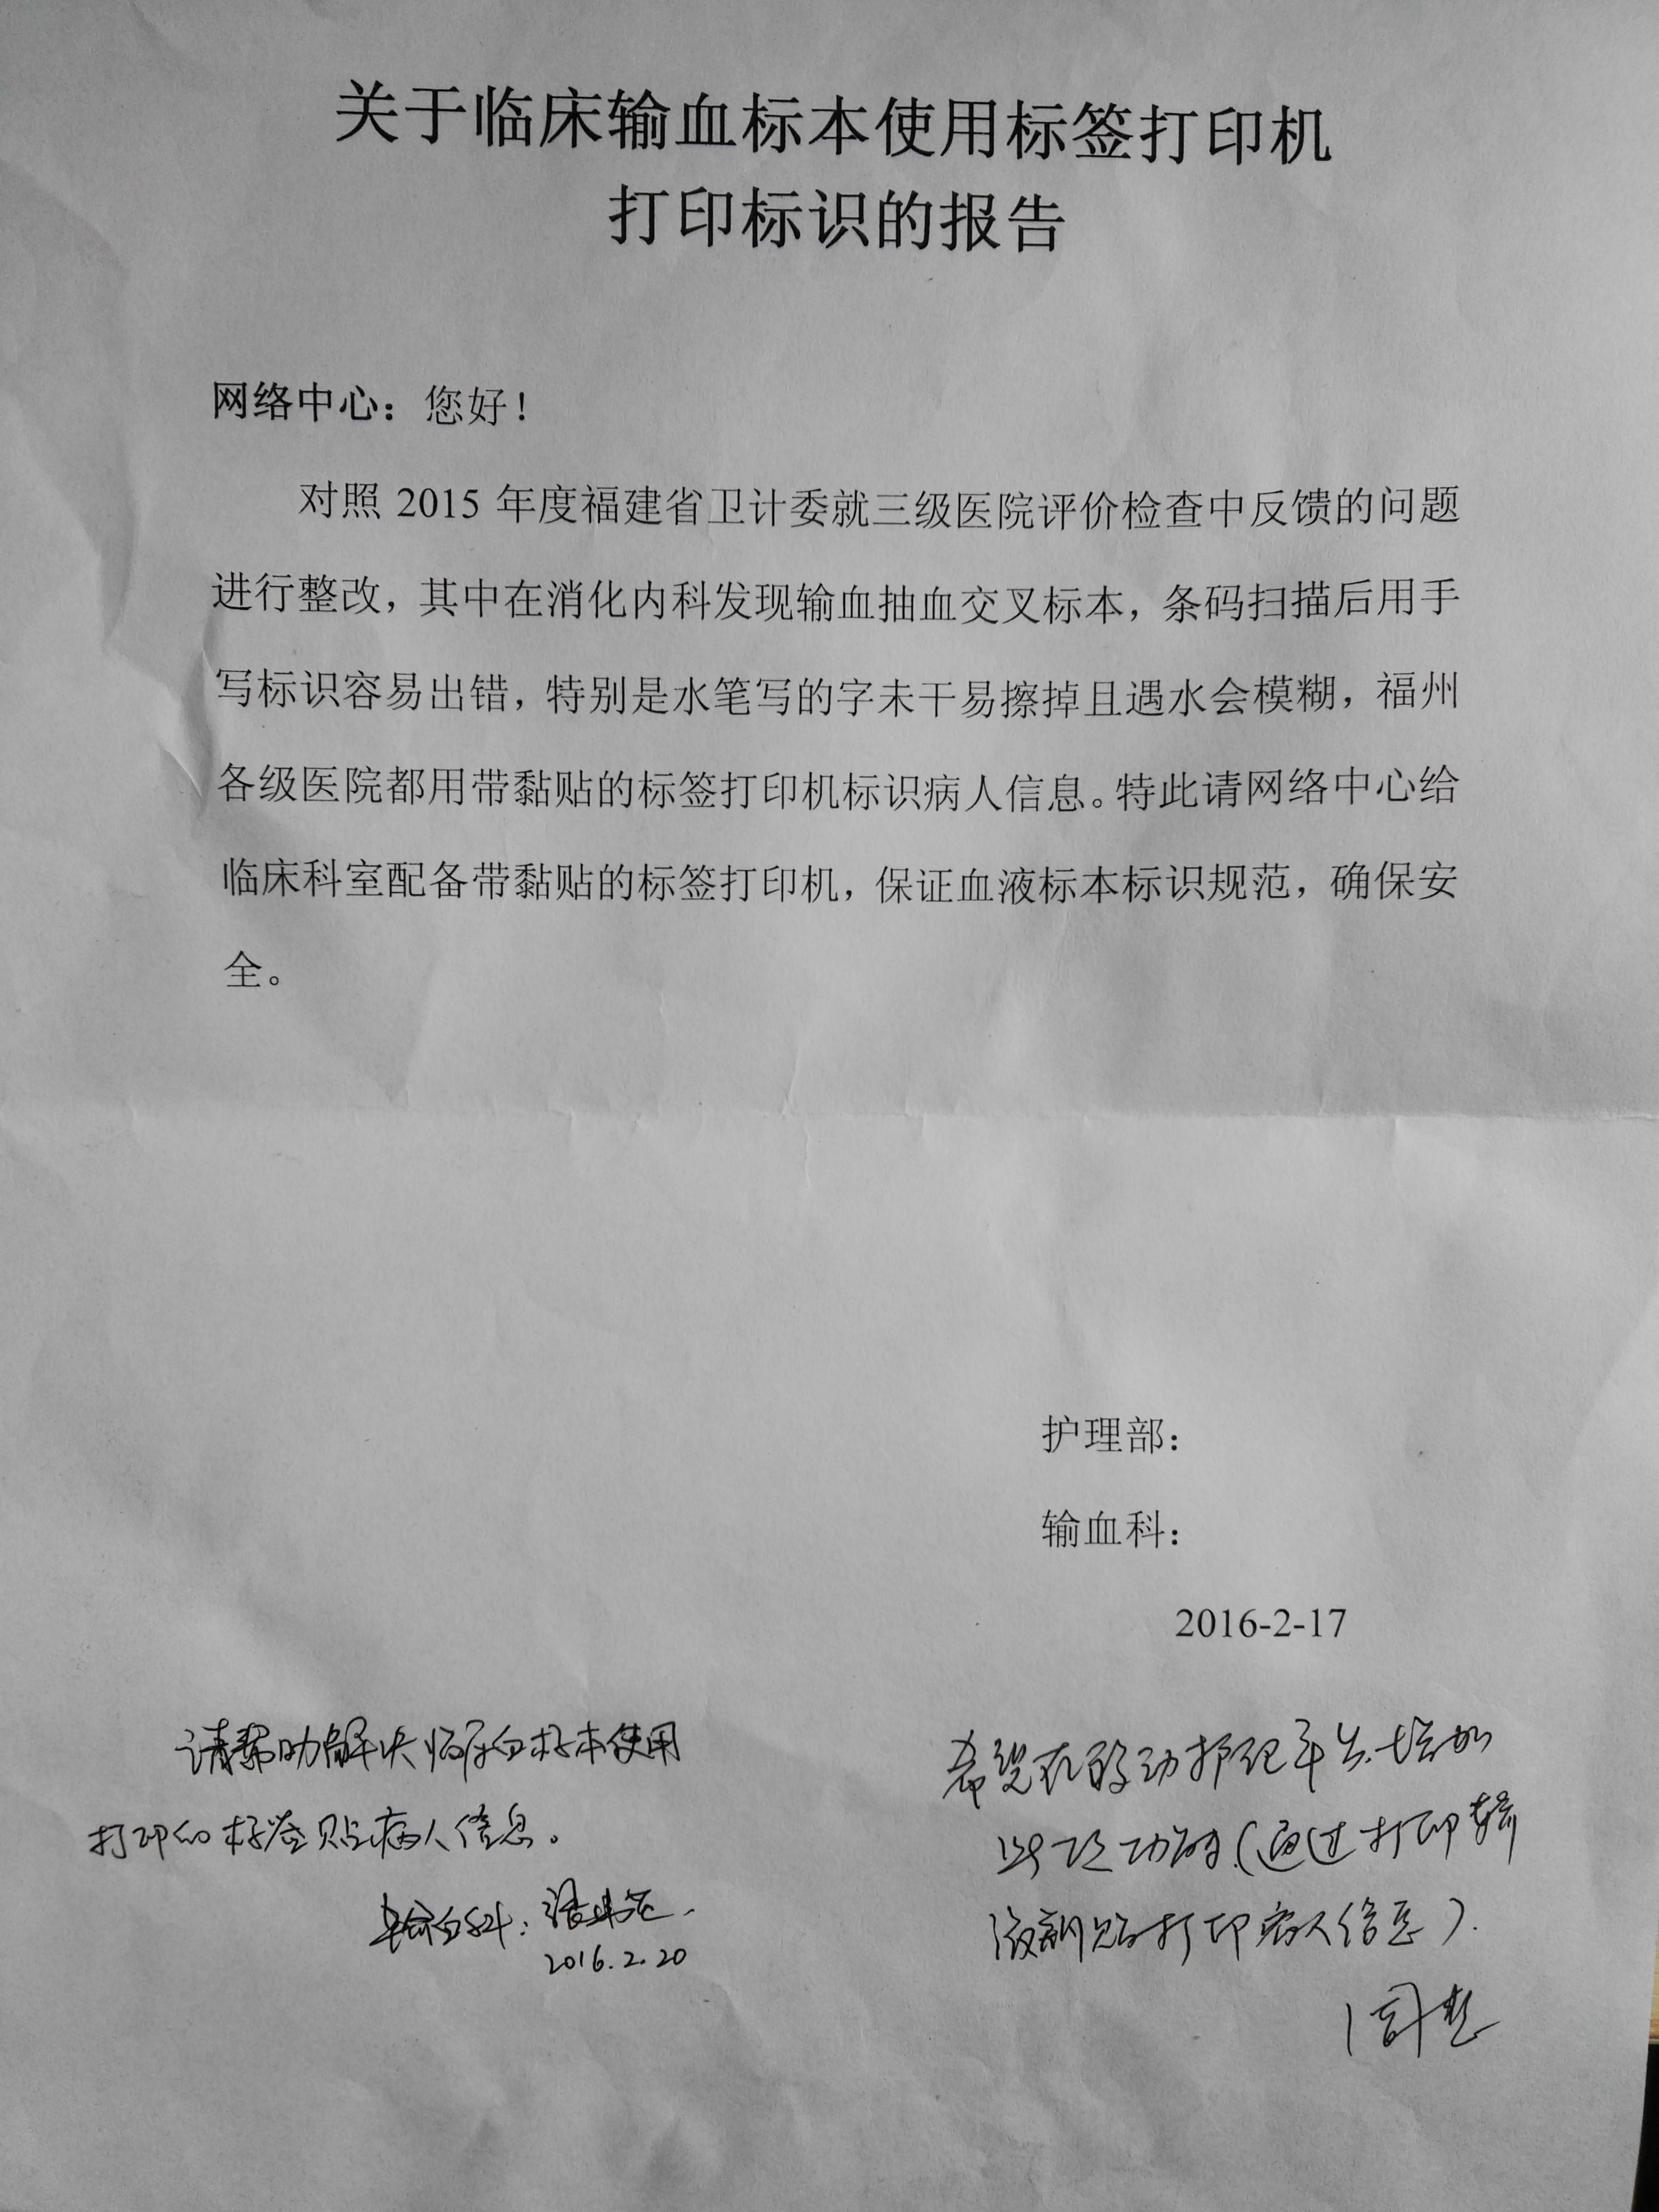 关于临床输血标本使用标签打印机
打印标识的报告
网络中心：您好！
对照 2015 年度福建省卫计委就三级医院评价检查中反馈的问题
进行整改，其中在消化内科发现输血抽血交叉标本，条码扫描后用手
写标识容易出错，特别是水笔写的字未干易擦掉且遇水会模糊，福州
各级医院都用带黏贴的标签打印机标识病人信息。特此请网络中心给
临床科室配备带黏贴的标签打印机，保证血液标本标识规范，确保安
全。
护理部：
输血科：
2016-2-17
请帮助解决临床血标本使用
打印的标签贴病人信息。
输血科：
2016.2.20
希望在移动护理平台增加
此项功能（通过打印输
液瓶贴打印病人信息）.